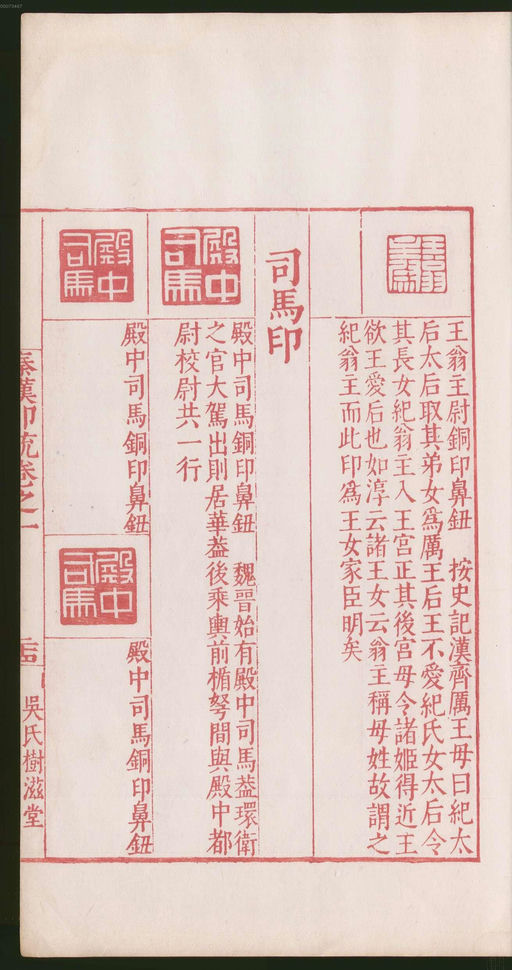 王翁主尉
王翁主尉銅印鼻鈕　按史記漢齊厲王母曰紀太
后太后取其弟女爲厲王后王不愛紀氏女太后令
其長女紀翁主入王宮正其後宮毋令諸姬得近王
欲王愛后也如淳云諸王女云翁主稱母姓故謂之
紀翁主而此印爲王女家臣明矣
司馬印
殿中司馬
殿中司馬銅印鼻鈕　魏晉始有殿中司馬葢環衛
之官大駕出則居華葢後乘輿前楯弩間與殿中都
尉校尉共一行
殿中司馬
殿中司馬銅印鼻鈕
殿中司馬
殿中司馬銅印鼻鈕
秦漢印統卷之一
吳氏樹滋堂